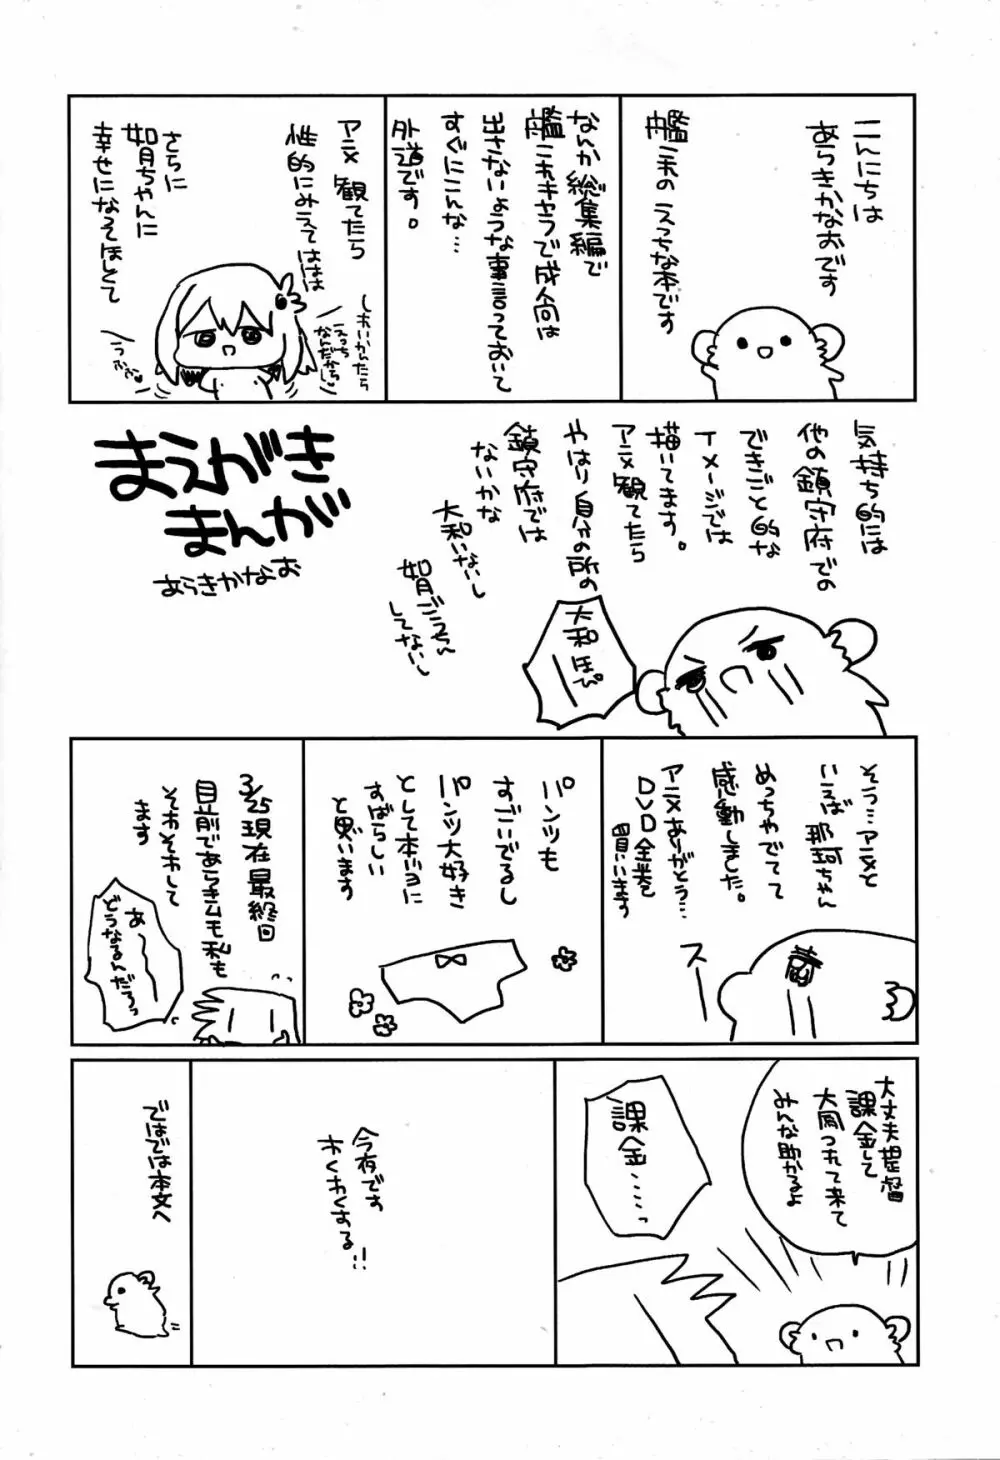 こんにちは
あらきかなおです
艦これの えっちな本です
なんか総集編で
艦これキャラで成人向は
出さないような事言っておいて
すぐにこんな…
外道です。
アニメ 観てたら
性的にみえてははは
さらに
如月ちゃんに
幸せになってほしくて
しれいかんたら
えっち
なんだから♡
うふふ♡
まえがき
まんが
あらきかなお
気持ち的には
他の鎮守府での
できごと的な
イメージでは
描いてます。
アニメ観てたら
やはり自分の所の
鎮守府では
ないかな
大和いないし
如月ごうちん
してないし
大和ほぴ
そう…アニメと
いえば 那珂ちゃん
めっちゃでてて
感動しました。
アニメありがとう…
DVD全巻
買います
スー
パンツも
すごいでるし
パンツ大好き
として本当に
すばらしい
と思います
3/25現在最終回
目前であらきムも私も
それそれして
ます
あ〜
どうなるんだろっ
大丈夫提督
課金して
大同つれて来て
みんな助かるよ
課金……っ
今夜です
わくわくする!!
ではでは本文へ